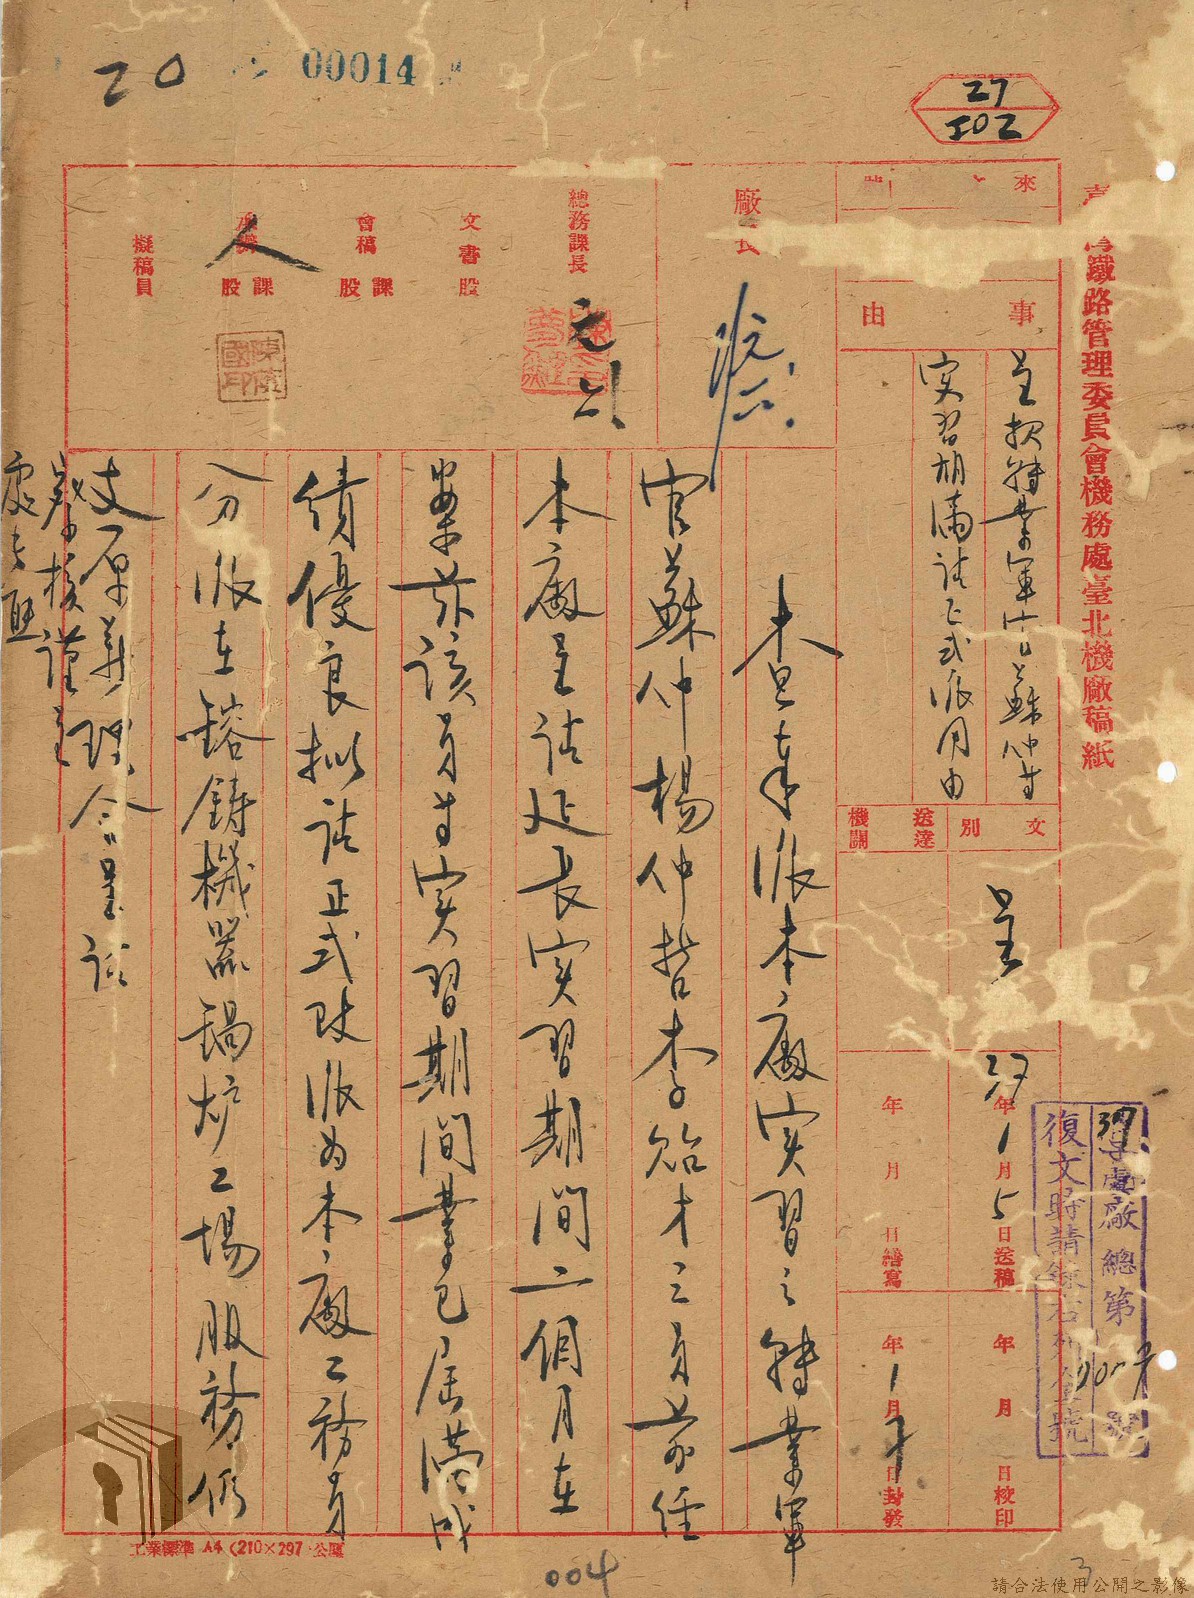 20
00014
27
502
鐵路管理委員會機務處臺北機廠稿紙
來
事
由
呈報轉業軍官蘇仲等
實習期滿請正式派用由
文別
送達機關
呈
37年1月5日送稿
年月日繕寫
年月日校印
年1月7日封發
廠長
總務課長
文書股
會稿課股
人
課股
擬稿員
字處廠總第號
復文時請錄右列號
查奉派本廠實習之轉業軍
官蘇仲楊仲哲李貽才三員前經
本廠呈請延長實習期間二個月在
案茲該員等實習期間業已屆滿成
績優良擬請正式改派為本廠工務員
分派在鎔鑄機器鍋炉工場服務仍
支原薪理合呈請
鑒核謹呈
處長
工業標準 A4 (210×297 公厘
004
3
請合法使用公開之影像